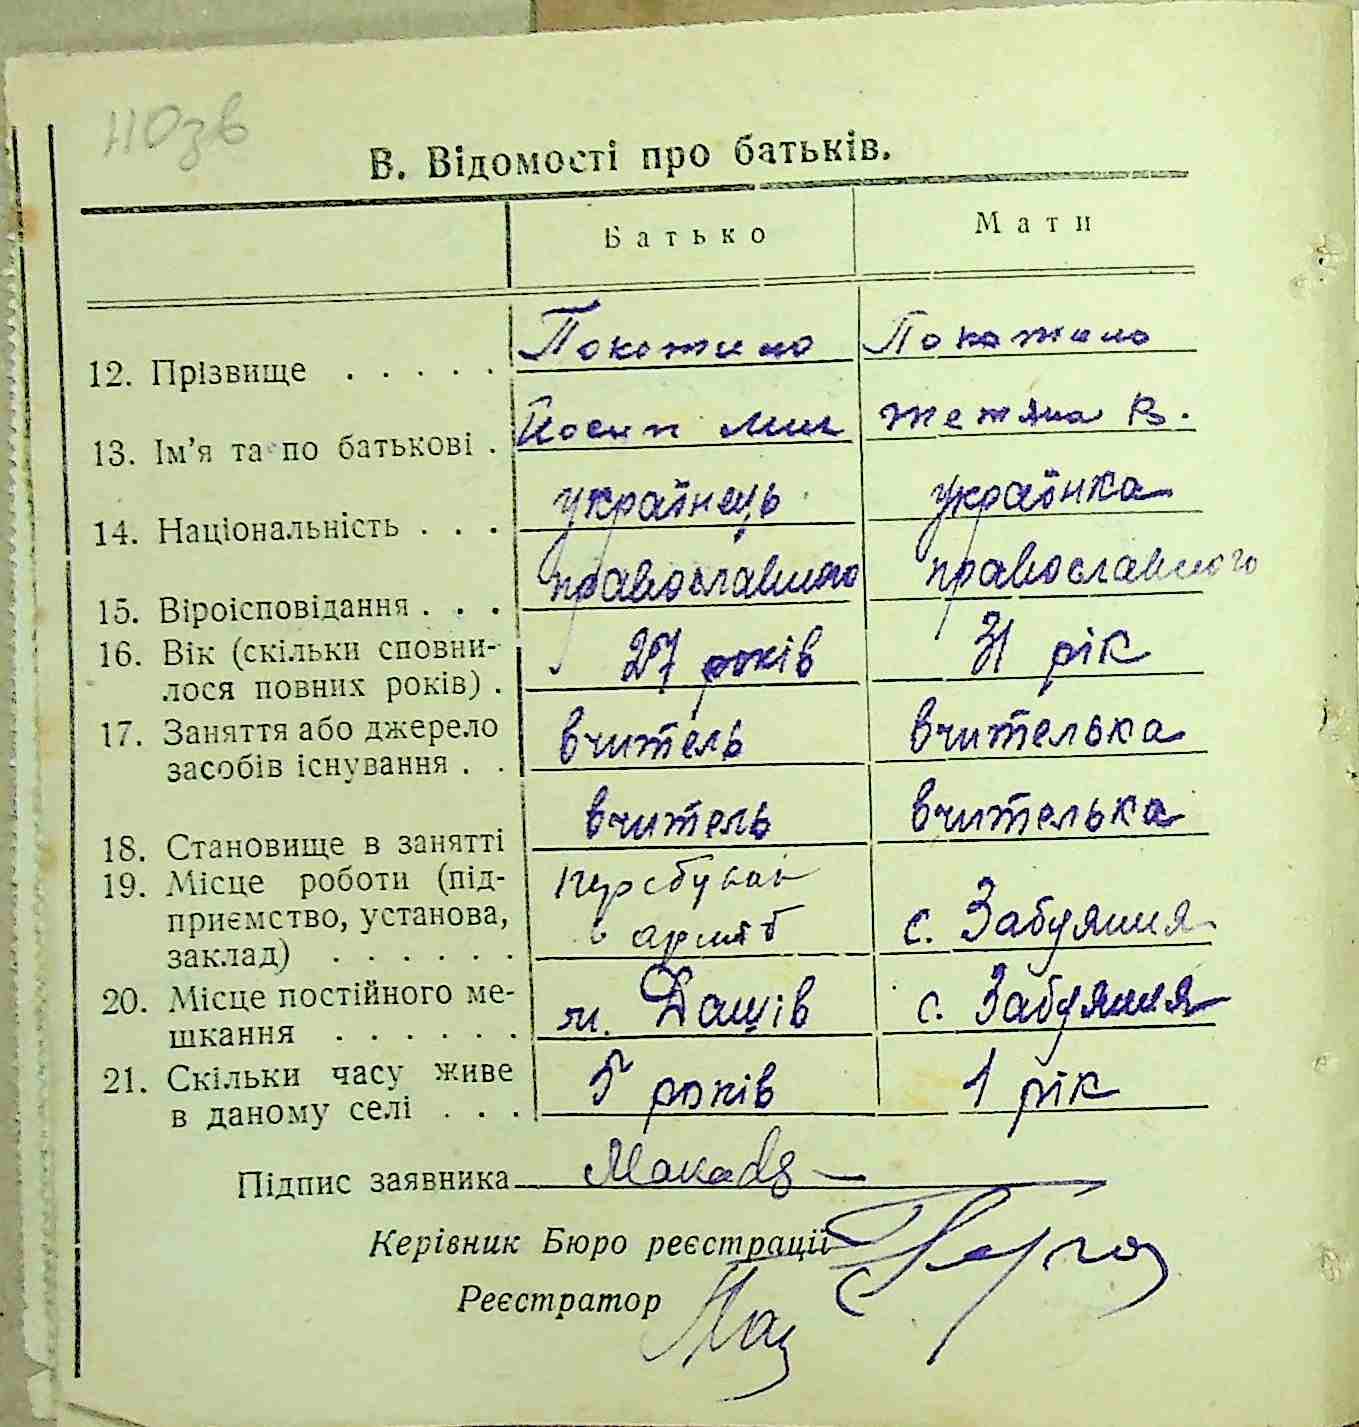 В. Відомості про батьків.
Батько Мати
12. Прізвище . . . . . Покотило Покотило
13. Ім'я та по батькові . Йосип В.
14. Національність . . . українець українка
15. Віроісповідання . . . православного православного
16. Вік (скільки сповни-
лося повних років) . 27 років 31 рік
17. Заняття або джерело
засобів існування . . вчитель вчителька
18. Становище в занятті вчитель вчителька
19. Місце роботи (під-
приємство, установа,
заклад) . . . . . . в с. Забужжя
20. Місце постійного ме-
шкання . . . . . . м. Дашів с. Забужжя
21. Скільки часу живе
в даному селі . . . 5 років 1 рік
Підпис заявника
Керівник Бюро реєстрації
Реєстратор